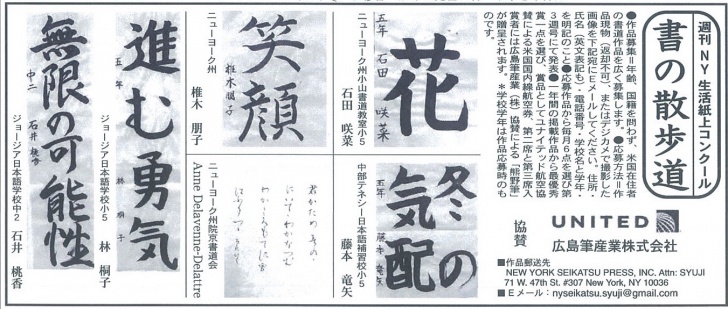 週刊NY生活紙上コンクール
書の散歩道
●作品募集=年齢、国籍を問わず、米国在住者
の書道作品を広く募集します。●応募方法=作
品現物(返却不可)、またはデジカメで撮影した
画像を下記宛にEメールしてください。住所・
氏名(英文表記も)・電話番号・学校名と学年・
を明記のこと●応募作品から毎月6点を選び第
3週号にて発表●一年間の掲載作品から最優秀
賞一点を選び、賞品としてユナイテッド航空協
賛による米国国内線航空券、第二席と第三席入
賞者には広島筆産業(株)協賛による「熊野筆」
が贈呈されます。*学校学年は作品応募時のも
のです。
協賛
UNITED
広島筆産業株式会社
■作品郵送先
NEW YORK SEIKATSU PRESS, INC. Attn: SYUJI
71 W. 47th St. #307 New York, NY 10036
■Eメール:nyseikatsu.syuji@gmail.com
花
五年 石田 咲菜
ニューヨーク州小山書道教室小5
石田 咲菜
冬の
気配
五年 藤本 竜矢
中部テネシー日本語補習校小5
藤本 竜矢
笑顔
椎木朋子
ニューヨーク州
椎木 朋子
君がため 春の
ニューヨーク州院京書道会
Anne Delavenne-Delattre
進む勇気
五年 林 桐子
ジョージア日本語学校小5
林 桐子
無限の可能性
中二 石井 桃香
ジョージア日本語学校中2
石井 桃香